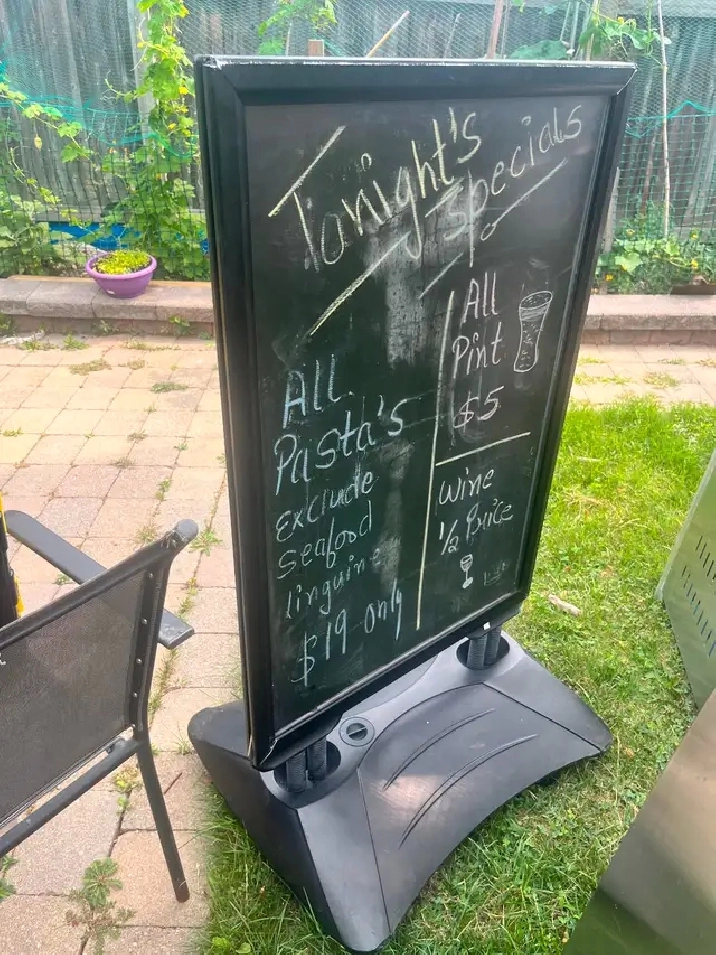 Tonight's
Specials
All
Pasta's
exclude
seafood
linguine
$19 only
All
Pint
$5
wine
1/2 Price